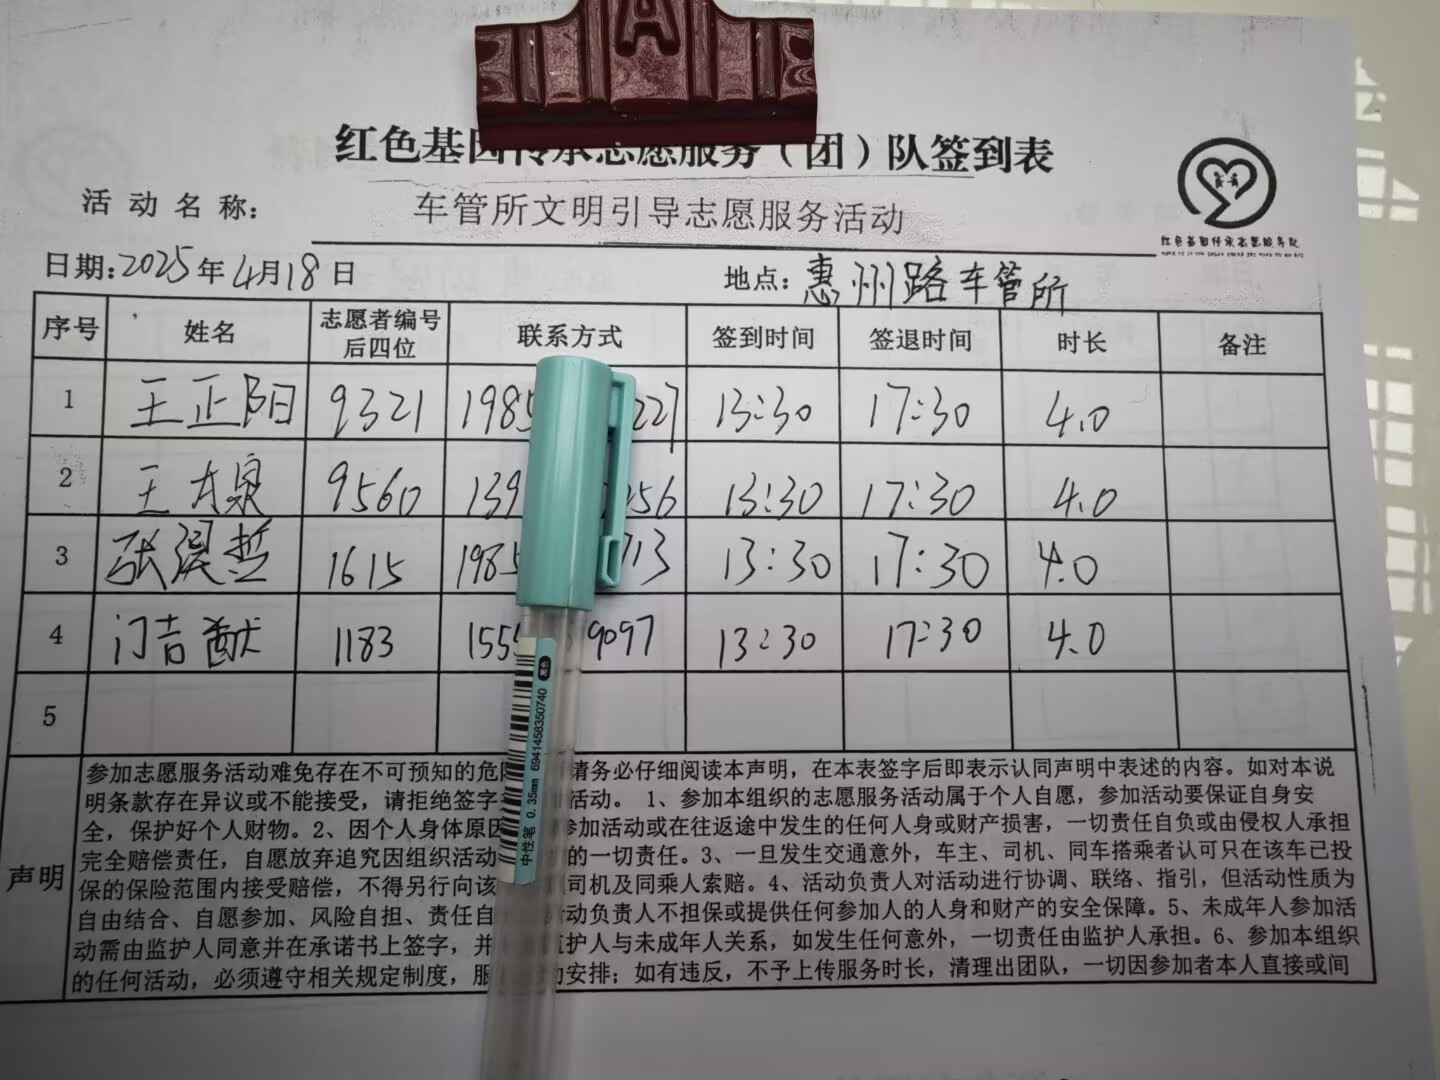 红色基因传承志愿服务（团）队签到表
活动名称：车管所文明引导志愿服务活动
红色基因传承志愿服务队
日期：2025年4月18日 地点：惠州路车管所
序号 姓名 志愿者编号后四位 联系方式 签到时间 签退时间 时长 备注
1 王正阳 9321 1985 227 13:30 17:30 4.0
2 王大泉 9560 139 256 13:30 17:30 4.0
3 张淏哲 1615 1985 713 13:30 17:30 4.0
4 门吉猷 1183 155 9097 13:30 17:30 4.0
5
声明
参加志愿服务活动难免存在不可预知的危 请务必仔细阅读本声明，在本表签字后即表示认同声明中表述的内容。如对本说
明条款存在异议或不能接受，请拒绝签字 活动。 1、参加本组织的志愿服务活动属于个人自愿，参加活动要保证自身安
全，保护好个人财物。2、因个人身体原因 参加活动或在往返途中发生的任何人身或财产损害，一切责任自负或由侵权人承担
完全赔偿责任，自愿放弃追究因组织活动 的一切责任。3、一旦发生交通意外，车主、司机、同车搭乘者认可只在该车已投
保的保险范围内接受赔偿，不得另行向该 司机及同乘人索赔。4、活动负责人对活动进行协调、联络、指引，但活动性质为
自由结合、自愿参加、风险自担、责任自 动负责人不担保或提供任何参加人的人身和财产的安全保障。5、未成年人参加活
动需由监护人同意并在承诺书上签字，并 监护人与未成年人关系，如发生任何意外，一切责任由监护人承担。6、参加本组织
的任何活动，必须遵守相关规定制度，服 安排；如有违反，不予上传服务时长，清理出团队，一切因参加者本人直接或间
中性笔 0.35mm 6941458350740